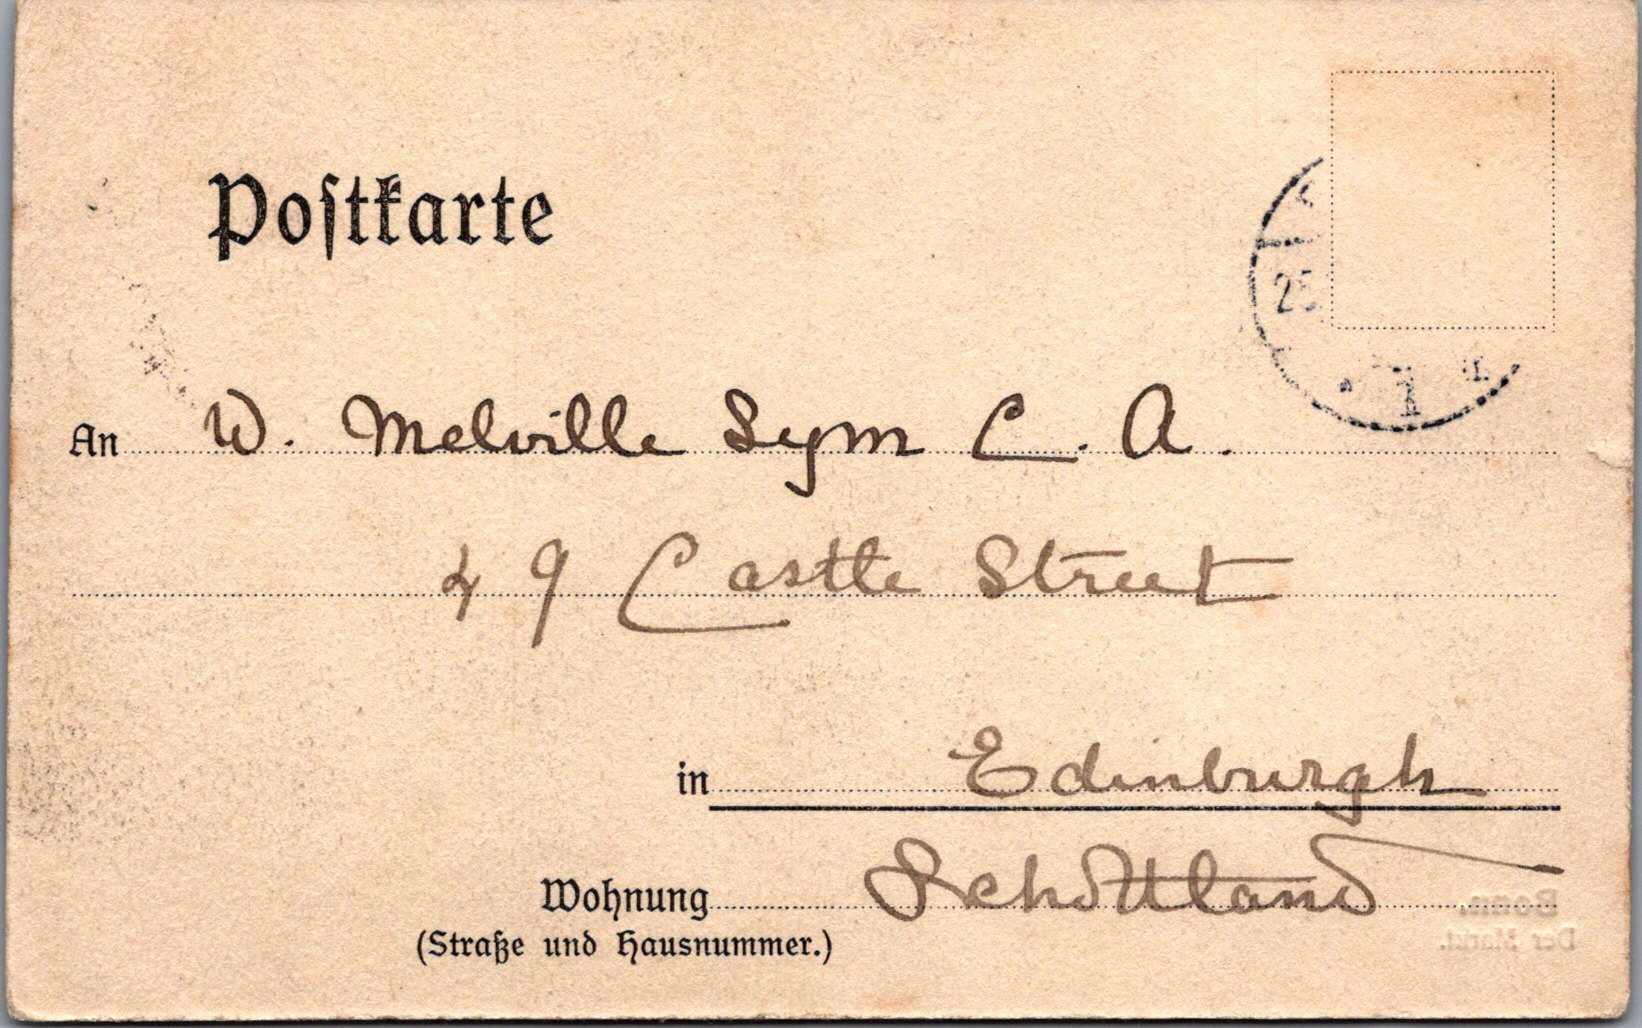 Postkarte
25
An W. Melville Sym C. A.
49 Castle Street
in Edinburgh
Wohnung Schottland
(Straße und Hausnummer.)
Bonn.
Der Markt.